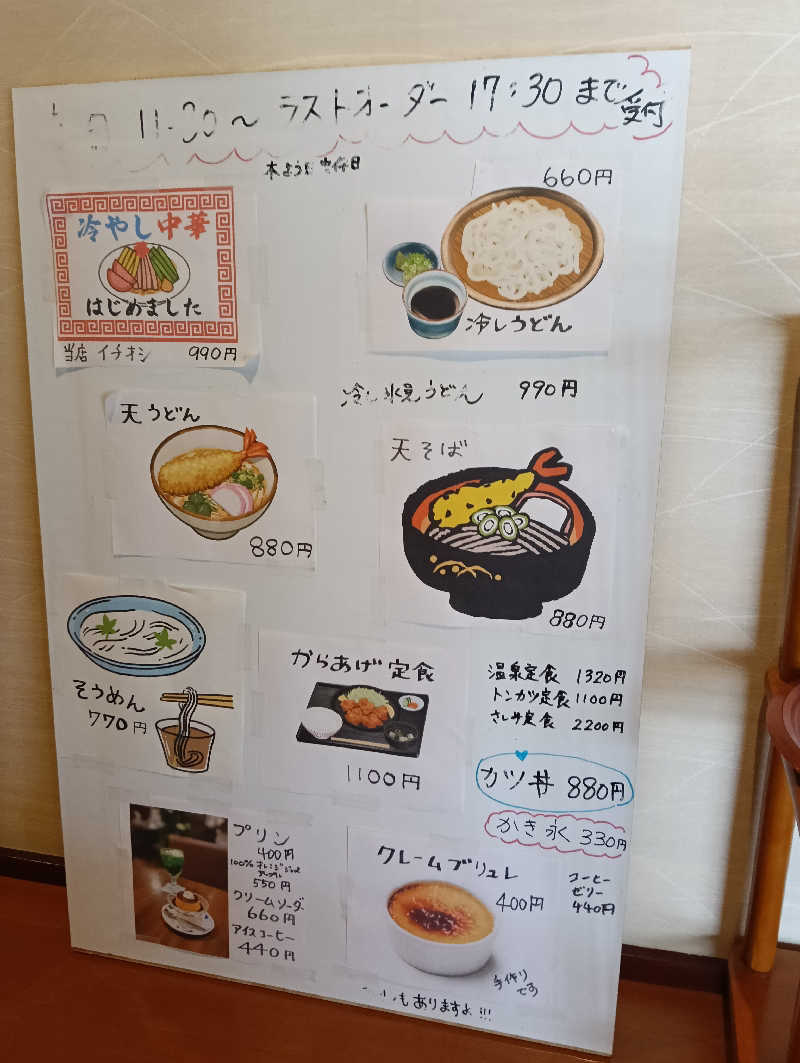 11:00～ ラストオーダー 17:30まで
受付
660円
冷やし中華
はじめました
当店 イチオシ 990円
冷しうどん
冷し氷見うどん 990円
天うどん
880円
天そば
880円
そうめん
770円
からあげ定食
1100円
温泉定食 1320円
トンカツ定食 1100円
定食 2200円
カツ丼 880円
かき氷 330円
プリン
400円
100%オレンジジュース
アップル
550円
クリームソーダ
660円
アイスコーヒー
440円
クレームブリュレ
400円
手作り
です
コーヒー
ゼリー
440円
もありますよ!!!